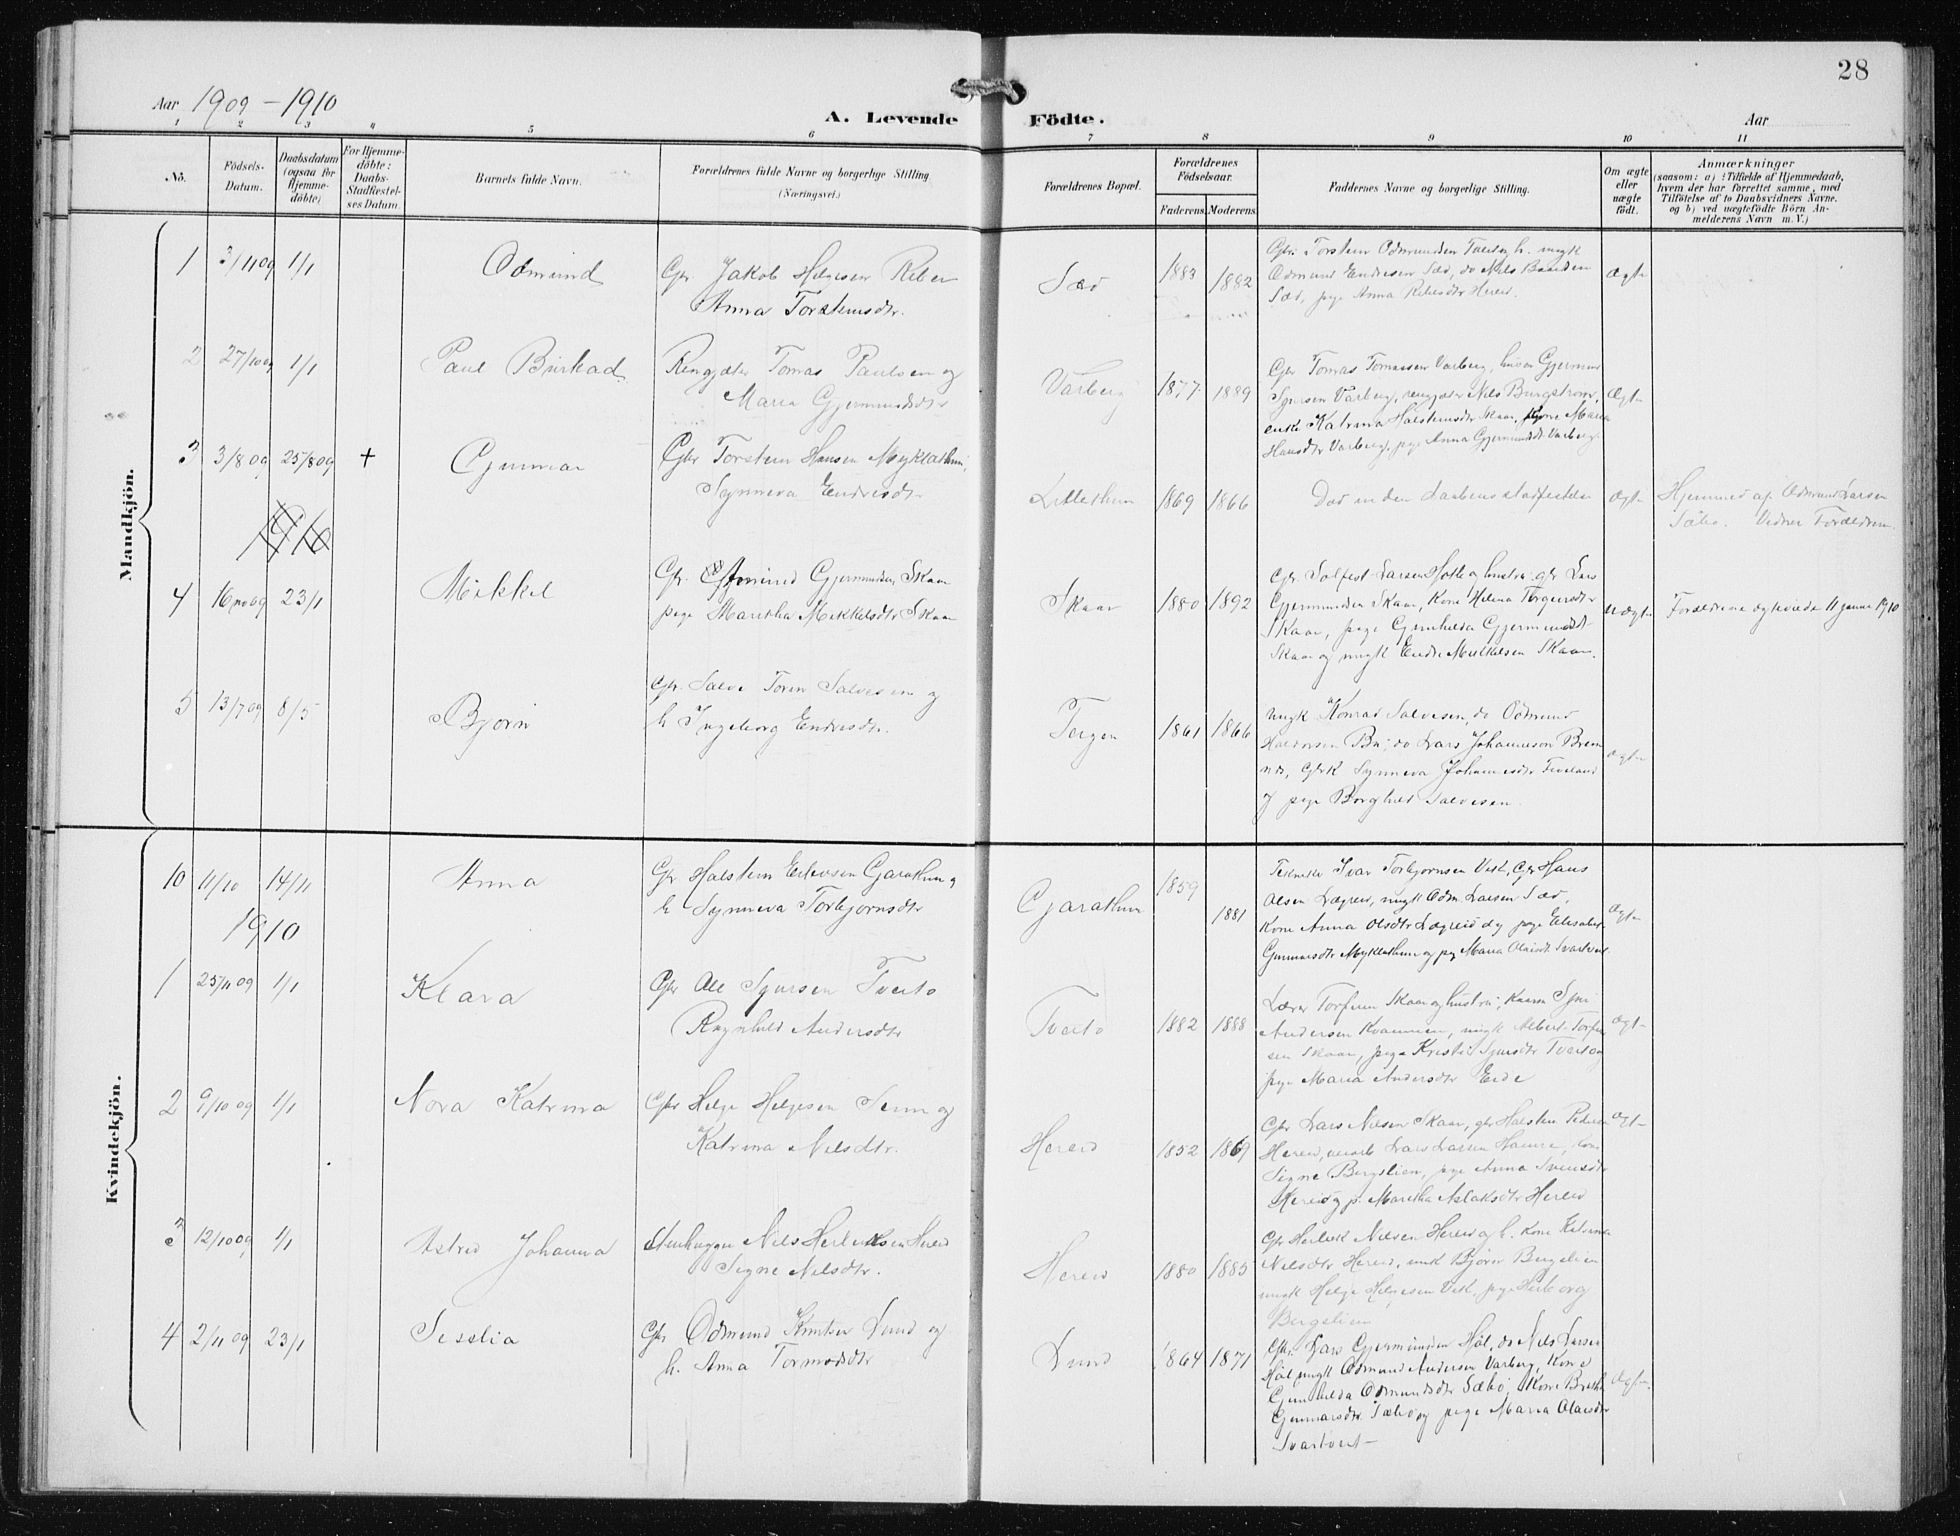 28
Aar 1909-1910
A. Levende Födte.
Aar
1 2 3 4 5 6 7 8 9 10 11
Nô.
Födsels-Datum.
Daabsdatum (ogsaa for Hjemme-döbte)
For Hjemme-döbte: Daabs-Stadfæstel-ses Datum.
Barnets fulde Navn.
Forældrenes fulde Navne og borgerlige Stilling.
(Næringsvei.)
Forældrenes Bopæl.
Forældrenes Födselsaar.
Faderens Moderens
Faddernes Navne og borgerlige Stilling.
Om ægte eller uægte födt.
Anmærkninger
(saasom: a) i Tilfælde af Hjemmedaab,
hvem der har forrettet samme, med
Tilföielse af to Daabsvidners Navne,
og b) ved uægtefödte Börn An-
melderens Navn m. V.)
Mandkjön.
1 3/11 09 1/1 Odmund Gbr Jakob Helgesen Reber
Anna Torsteinsdtr.
Sæd 1883 1882
Gbr. Torstein Odmundsen Tveit og h. ungk
Odmund Endresen Sæd, do Nils Baardsen
Sæd, pige Anna Hereid.
Ægte
2 27/10 09 1/1 Paul Burkad Rengjæter Tomas Paulsen og
Maria Gjermundsdtr
Varberg 1877 1889
Gbr Tomas Tomassen Varberg, Gjermund
Sjursen Varberg, rengjæter Nils Burgstrom,
enke Katrina Halsteinsdtr Skaar, kone Maria
Hansdtr Varberg, pige Anna Gjermundsdtr Varberg.
Ægte
3 3/8 09 25/8 09 + Gunnar Gbr Torstein Hansen Myklathun,
Synneva Endresdtr
Lillethun 1869 1866
Død inden Daabens stadfestelse
Ægte
Hjemmed. af Odmund Larsen
Sæbø. Vidner Forældrene.
1910
4 16/nov 09 23/1 Mikkel Gbr. Amund Gjermundsen Skaar
pige Maritha Mikkelsdtr Skaar
Skaar 1880 1892
Gbr. Solfest Larsen Hotle og hustru, gbr Lars
Gjermundsen Skaar, Kone Helena Torgeirsdtr
Skaar, pige Gunhilda Gjermundsdtr
Skaar og ungk Endre Mikkelsen Skaar.
Uægte
Forældrene ægteviede 11 januar 1910
5 13/7 09 8/5 Bjørn Gbr. Salve Toren Salvesen og
h Ingeborg Endresdtr.
1861 1866
ungk Konrad Salvesen, do Odmund
Haldorsen Bu, do Lars Johanneson Brem
nes, Gbrk Synneva Johannesdtr Tveiland
og pige Borghild Salvesen.
Ægte
Kvindekjön.
10 11/10 14/11 Anna Gbr Halstein Garathun og
h Synneva Torbjørnsdtr
Garathun 1859 1881
Tekniker Ivar Torbjørnsen Vik, Gbr Hans
Olsen Lægreid, ungk Odm. Larsen Sæd,
Kone Anna Olsdtr Lægreid og pige Elisabet
Gunnarsdtr Myklathun og pig Maria Olavsdt Svartveit
Ægte
1910
1 25/11 09 1/1 Klara Gbr Ole Sjursen Tveito
Ragnhild Andersdtr
Tveito 1882 1888
Lærer Torfinn Skaar og hustru, Sjur
Andersen Kvammen, ungk Albert Torfin
sen Skaar, pige Kristi Sjursdtr Tveito og
pige Maria Andersdtr Eide
Ægte
2 9/10 09 1/1 Nora Katrina Gbr Helge Helgesen og
Katrina Nilsdtr.
Hereid 1852 1869
Gbr Lars Nilsen Skaar, gbr Halsten Pedersen
Hereid, Lars Larsen Hamre, kone
Signe Bergslien, pige Anna Svensdtr
Hereid og p. Maritha Aslaksdtr Hereid
Ægte
3 12/10 09 1/1 Astrid Johanna Stenhugger Nils Herleiksen Hereid
Signe Nilsdtr.
Hereid 1880 1885
Gbr Herleik Nilsen Hereid og h. kone Katrina
Nilsdtr Hereid, unk Bjørn Bergslien
ungk Helge Helgesen Vik, pige Herborg
Bergslien
4 2/11 09 23/1 Sesslia Gbr. Odmund Knutsen Lund og
h. Anna Tormodsdtr
Lund 1864 1871
Gbr. Lars Gjermundsen Høl, do Nils Larsen
Høl, ungk Odmund Andersen Varberg, Kone
Gunhilda Odmundsdtr Sæbø, Kone Britha
Gunnarsdtr Sæbø og pige Maria Olavsdtr
Svartveit
Ægte.